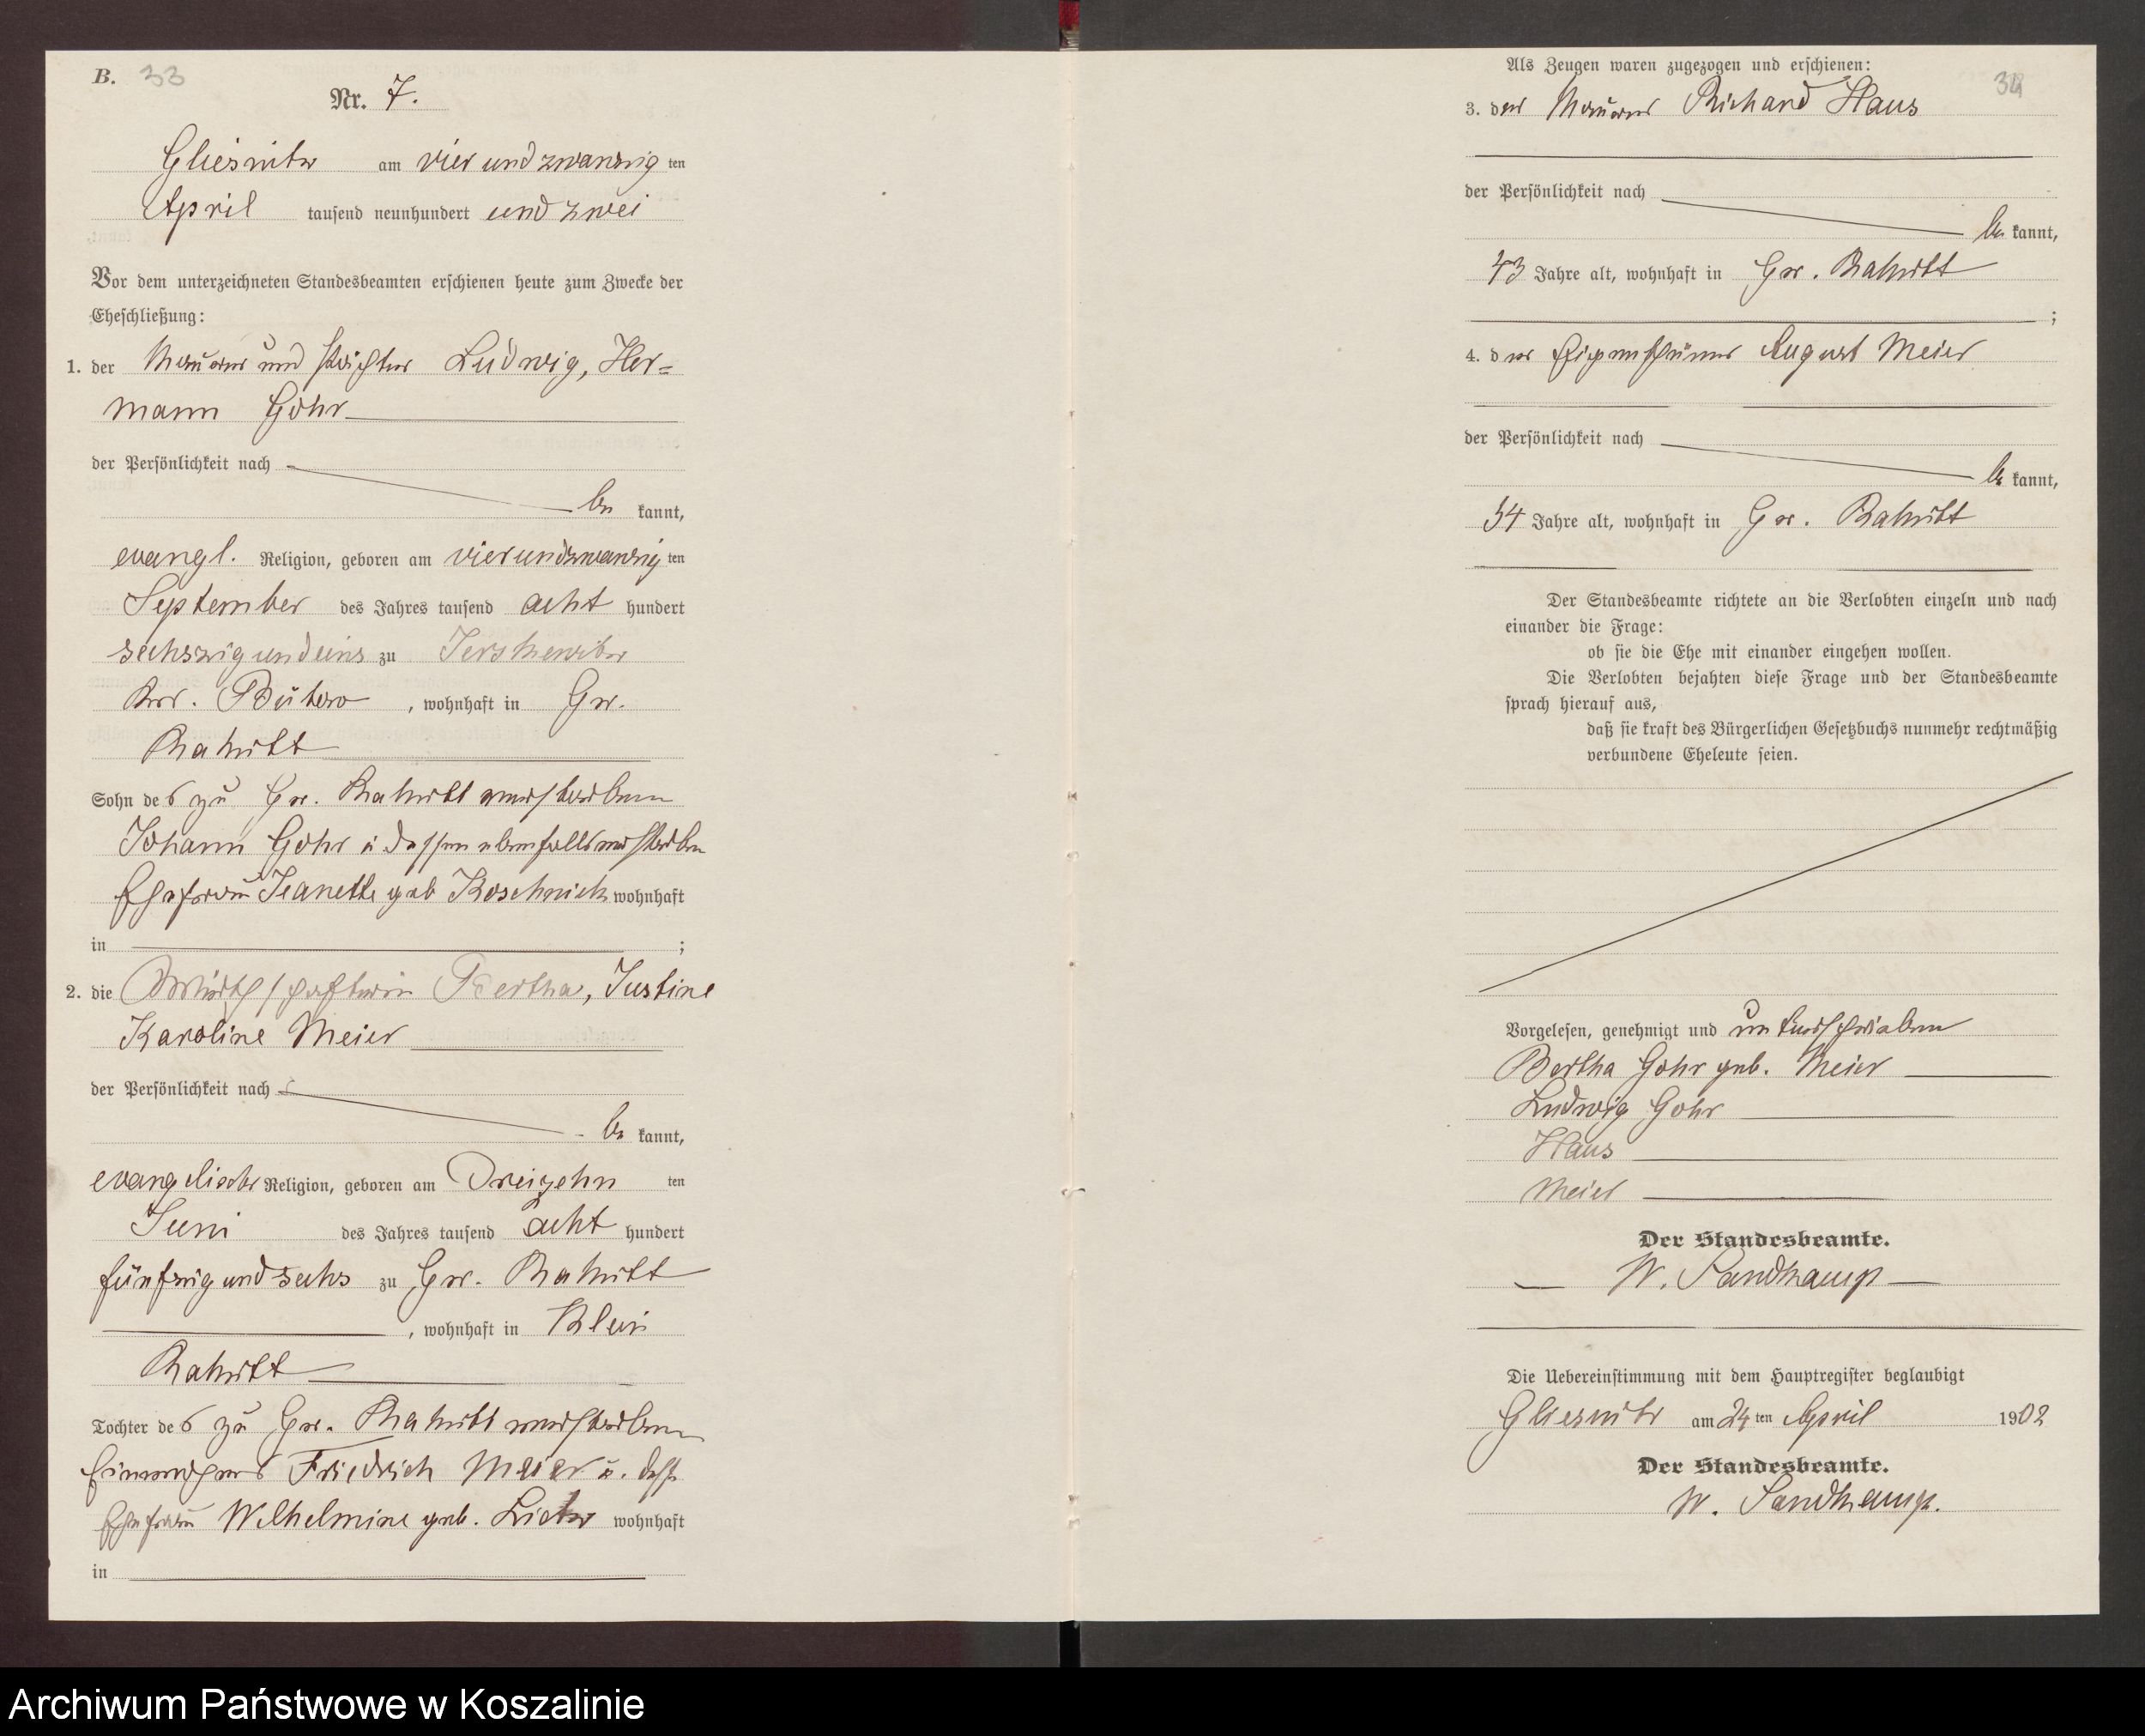 B. 33
Nr. 7.
Gliesnitz am vier und zwanzig ten
April tausend neunhundert und zwei
Vor dem unterzeichneten Standesbeamten erschienen heute zum Zwecke der
Eheschließung:
1. der Maurer und Pächter Ludwig, Her=
mann Gohr
der Persönlichkeit nach
be kannt,
evangl. Religion, geboren am vierundzwanzig ten
September des Jahres tausend acht hundert
sechszig und eins zu
Krs. Bütow, wohnhaft in Gr.
Rakitt
Sohn des zu Gr. Rakitt verstorbenen
Johann Gohr u dessen ebenfalls verstorben
Ehefrau Jeanette geb Koschnick wohnhaft
in ;
2. die Bertha, Justine
Karoline Meier
der Persönlichkeit nach
be kannt,
evangelischer Religion, geboren am Dreizehn ten
Juni des Jahres tausend acht hundert
fünfzig und sechs zu Gr. Rakitt
, wohnhaft in Klein
Rakitt
Tochter des zu Gr. Rakitt verstorbenen
Einwohners Friedrich Meier u. dess.
Ehefrau Wilhelmine geb. wohnhaft
in
Als Zeugen waren zugezogen und erschienen:
34
3. der Maurer Richard Haus
der Persönlichkeit nach
be kannt,
43 Jahre alt, wohnhaft in Gr. Rakitt
;
4. der Eigenthümer August Meier
der Persönlichkeit nach
be kannt,
54 Jahre alt, wohnhaft in Gr. Rakitt
Der Standesbeamte richtete an die Verlobten einzeln und nach
einander die Frage:
ob sie die Ehe mit einander eingehen wollen.
Die Verlobten bejahten diese Frage und der Standesbeamte
sprach hierauf aus,
daß sie kraft des Bürgerlichen Gesetzbuchs nunmehr rechtmäßig
verbundene Eheleute seien.
Vorgelesen, genehmigt und unterschrieben
Bertha Gohr geb. Meier
Ludwig Gohr
Haus
Meier
Der Standesbeamte.
W. Sandkamp
Die Uebereinstimmung mit dem Hauptregister beglaubigt
Gliesnitz am 24 ten April 1902
Der Standesbeamte.
W. Sandkamp.
Archiwum Państwowe w Koszalinie